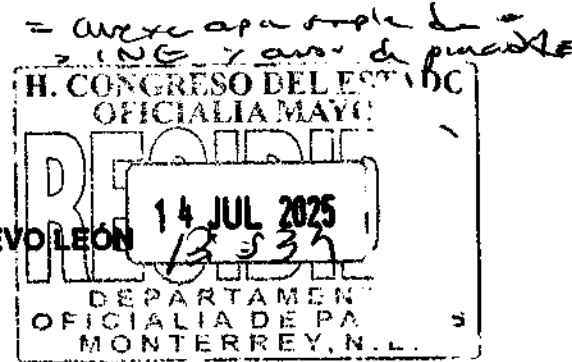 = anexa copia simple de
INE y aviso de privacidad
H. CONGRESO DEL ESTADO
OFICIALIA MAYO
RECIBID
14 JUL 2025
EVO LEÓN
DEPARTAMEN
OFICIALIA DE PA S
MONTERREY, N.L.